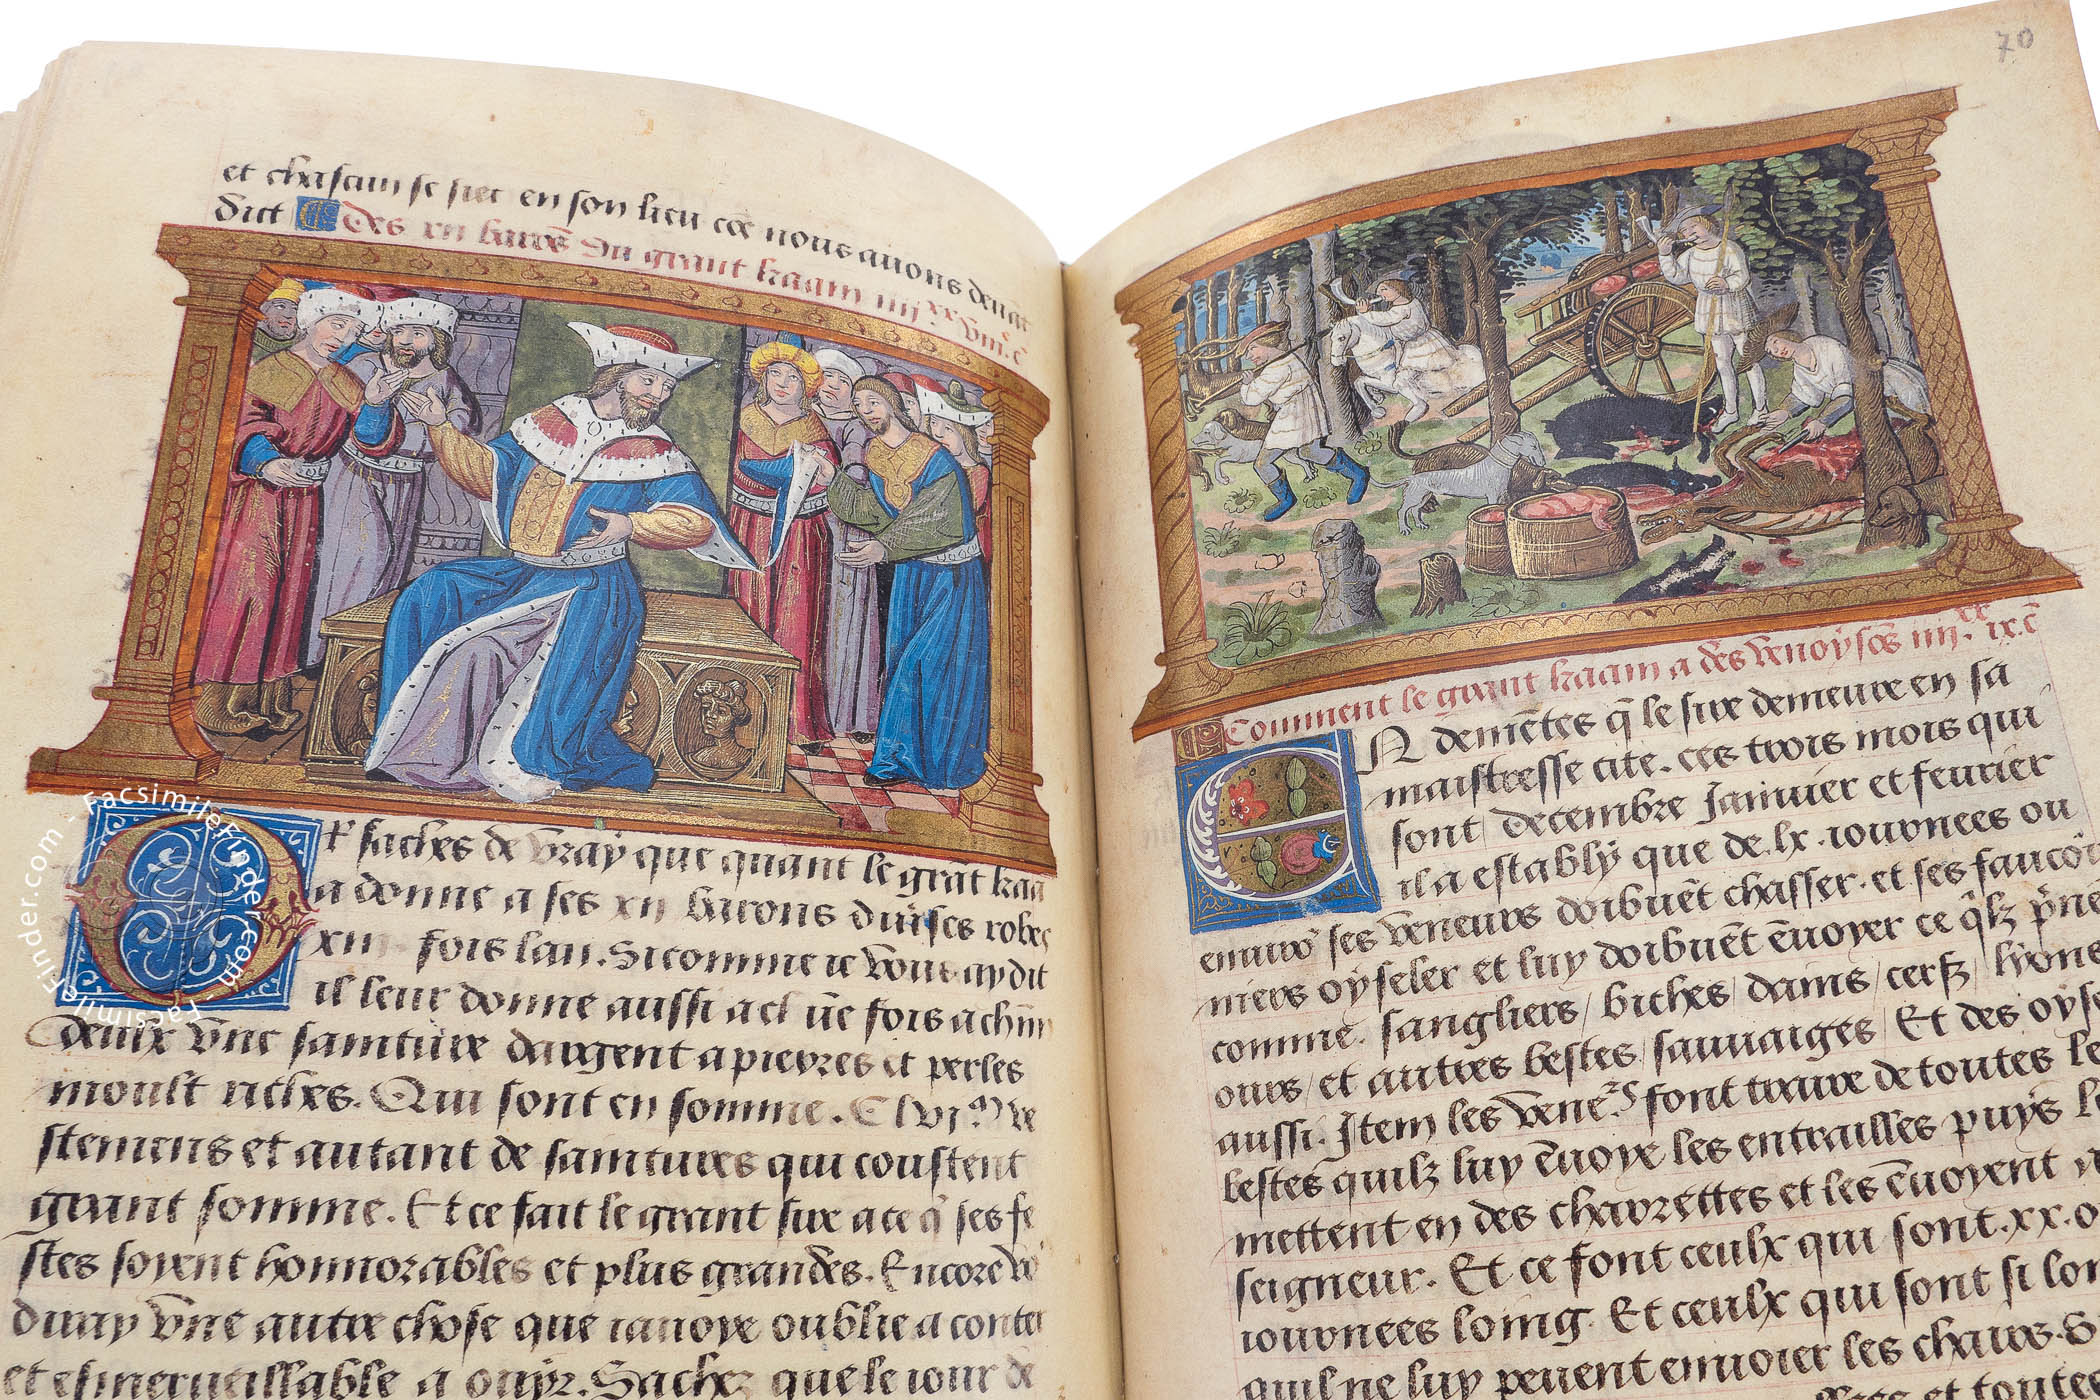 et chascun se siet en son lieu cõe nous auons deuãt
dict Des xii barõs du grant kaam iiii.xx viii.c̃
Or saches de vray que quant le grãt kaa
a donne a ses xii barons diuses robes
xiii fois lan. Si comme ie vous ay dit
il leur donne aussi a cl ũe fois a chũn
deulx vne sainture dargent a pierres et perles
moult riches. Qui sont en somme. Clvi.M ve
stemens et autant de saintures qui coustent
grant somme. Et ce fait le grant sire a ce q̃ ses fe
stes soyent honnorables et plus grandes. Encore vo
diray vne autre chose que iauoye oublie a conter
et esmerueillable a ouyr. Sachez que le iour de
70
Comment le grant kaam a des venoysõs iiii.xx ix.c̃
EN dementes q̃ le sire demeure en sa
maistresse cite. ces trois mois qui
sont / decembre Januier et feurier
il a estably que de .lx. iournees ou
enuirõ ses veneurs doibuẽt chasser. et ses faucõ
niers oyseler et luy doibuẽt ẽuoyer ce q̃lz p̃ne
comme. sangliers / biches / dains / cerfz / lyons
ours / et autres bestes / sauuaiges / Et des oyse
aussi. Item les vene.rs font traire de toutes le
bestes quilz luy ẽuoye les entrailles puys le
mettent en des charrettes et les ẽuoyent a
seigneur. Et ce font ceulx qui sont .xx. o
iournees loing. Et ceulx qui sont si loi
quil ne luy peuent enuoier les chairs. S
et toutes
FacsimileFinder.com - FacsimileFinder.com - FacsimileFinder.com